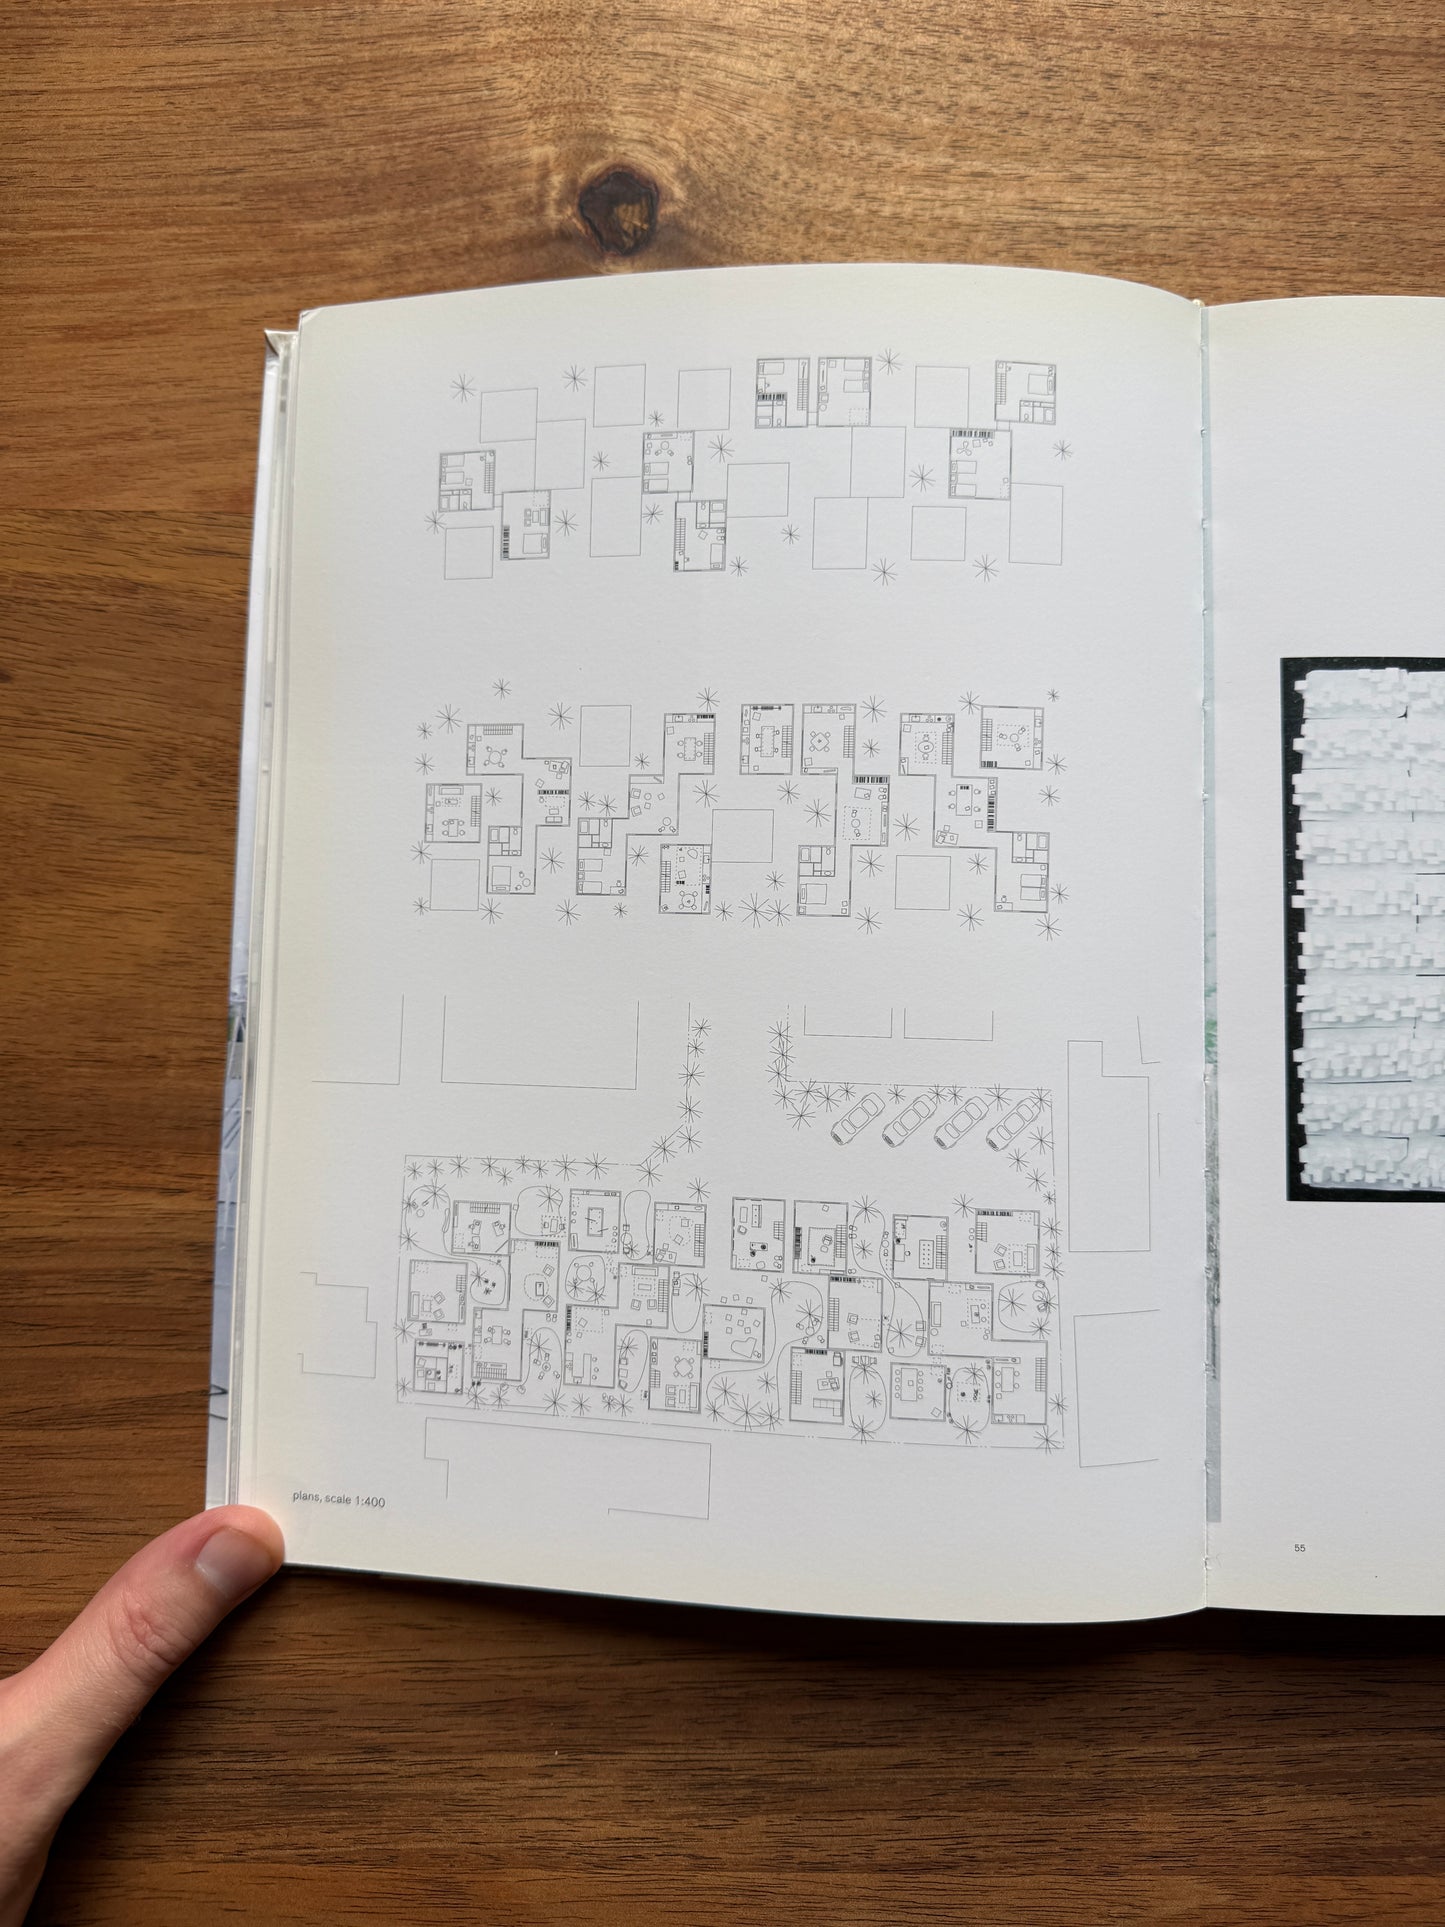 plans, scale 1:400
55